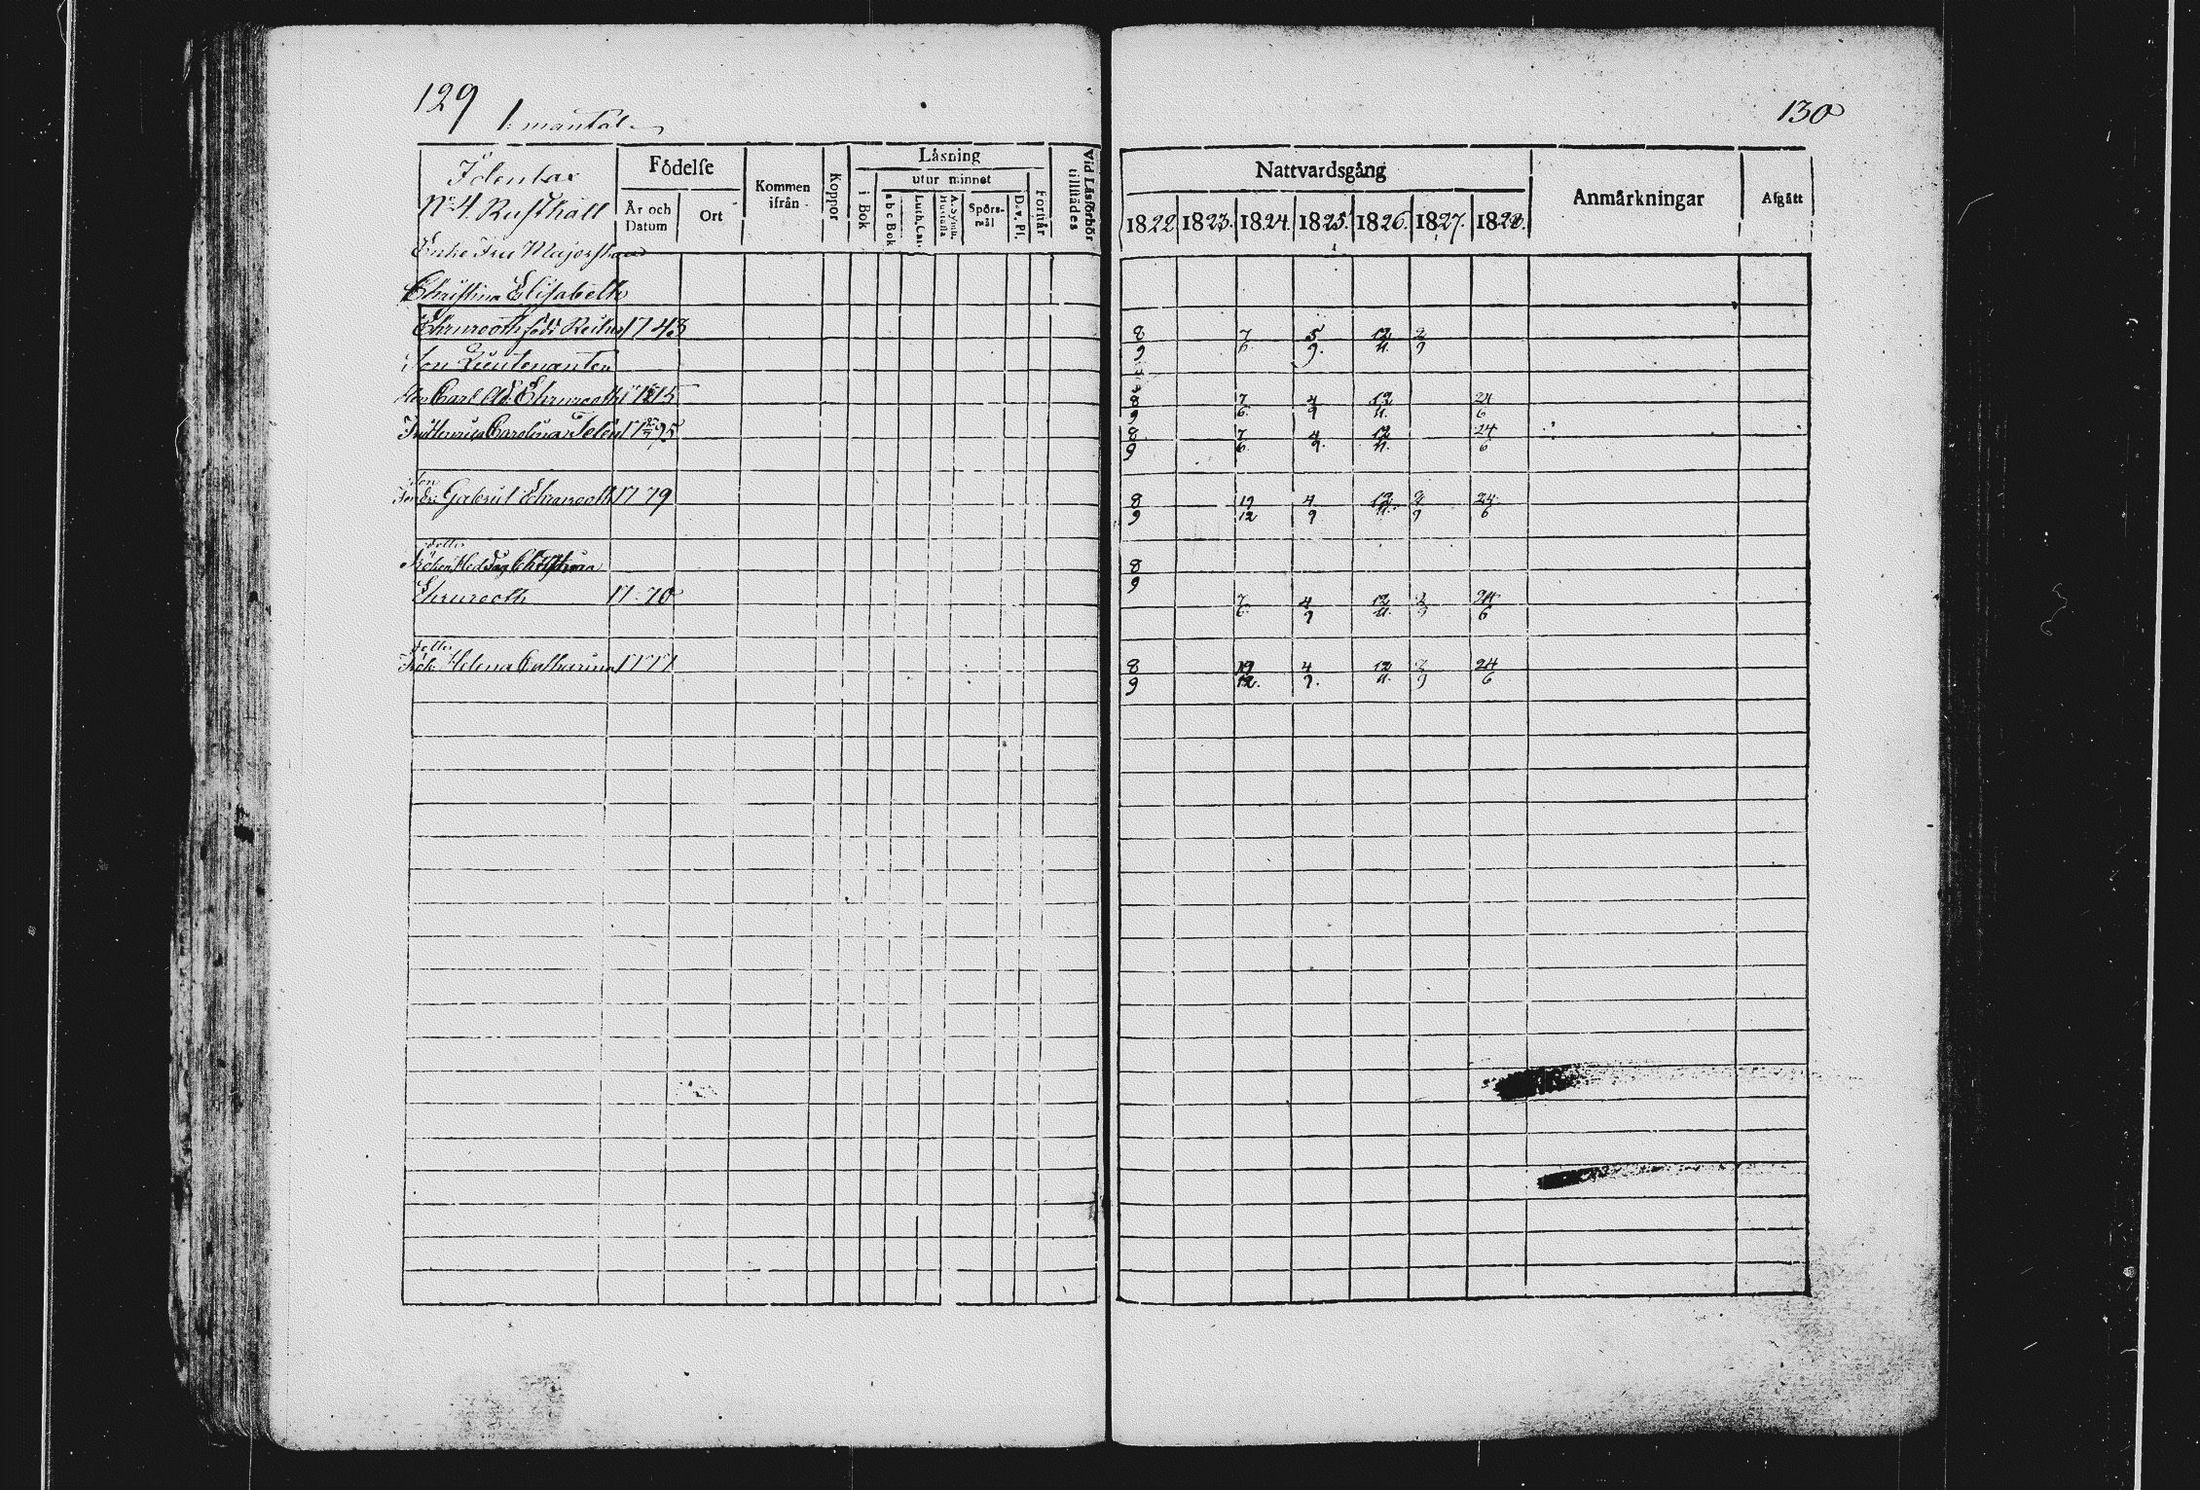 129
130
1. mantal
Födelse
Kommen ifrån
Koppor
Låsning
i Bok
utur minnet
a b c Bok
Luth. Cat.
A. Symb. Hustafla
Spörsmål
Dav. Ps.
Förstår
Vid Låsförhör tillstådes
År och Datum
Ort
Nattvardsgång
1822 1823. 1824. 1825. 1826. 1827. 1828.
Anmårkningar
Afgått
No 4 Rusthåll
Enke Fru Majorskan
Christina Elisabeth
Ehrnrooth född 1743 8/9 7/6 5/9. 12/11. 2/9
Son Lieutenanten
Carl Ad. Ehrnrooth 8/9 7/6. 4/9 12/11. 24/6
Carolina 1795 8/9 7/6. 4/9. 12/11. 24/6
Son
Gabriel Ehrnrooth 1779 8/9 19/12 4/9 12/11. 2/9 24/6
Dotter
Fröken Hedvig Christina 8/9
Ehrnrooth 1770 7/6. 4/9 12/11. 2/9 24/6
Dotter
Frök. Helena Catharina 1771 8/9 19/12. 4/9. 12/11. 2/9 24/6